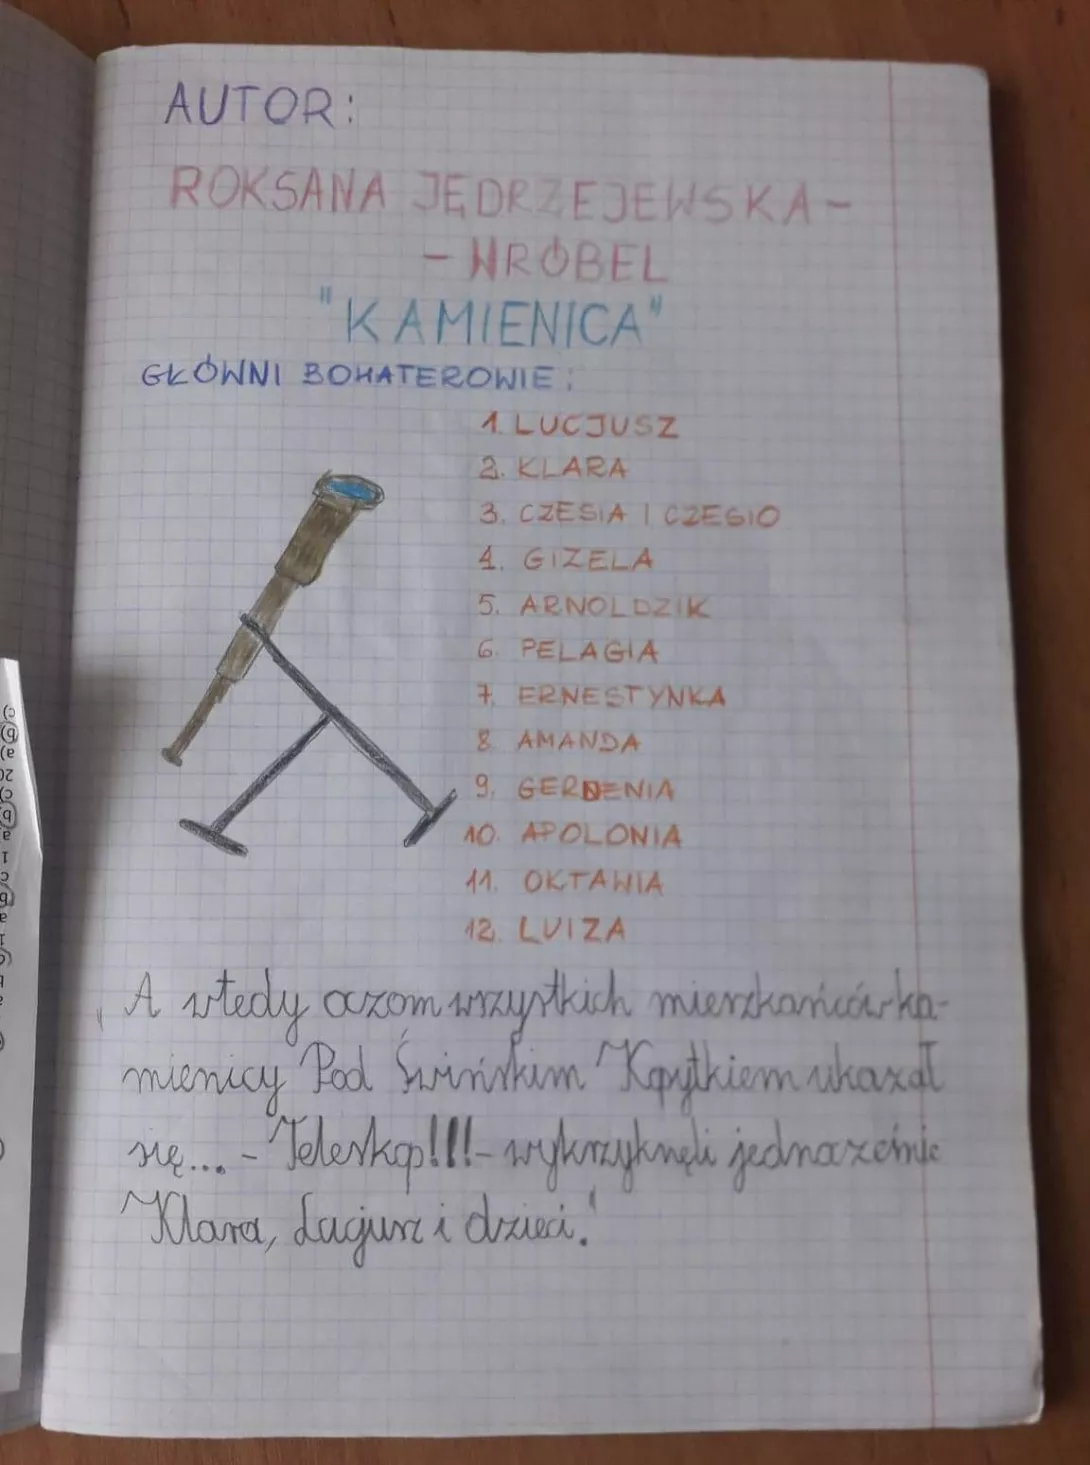 AUTOR:
ROKSANA JĘDRZEJEWSKA-
- WRÓBEL
"KAMIENICA"
GŁÓWNI BOHATEROWIE:
1. LUCJUSZ
2. KLARA
3. CZESIA I CZESIO
4. GIZELA
5. ARNOLDZIK
6. PELAGIA
7. ERNESTYNKA
8. AMANDA
9. GERDENIA
10. APOLONIA
11. OKTAWIA
12. LUIZA
„A wtedy oczom wszystkich mieszkańców ka-
mienicy Pod Świńskim Kopytkiem ukazał
się... - Teleskop!!! - wykrzyknęli jednocześnie
Klara, Lucjusz i dzieci."
c)
b)
a)
20
c)
b)
a
1
c
b
a
1